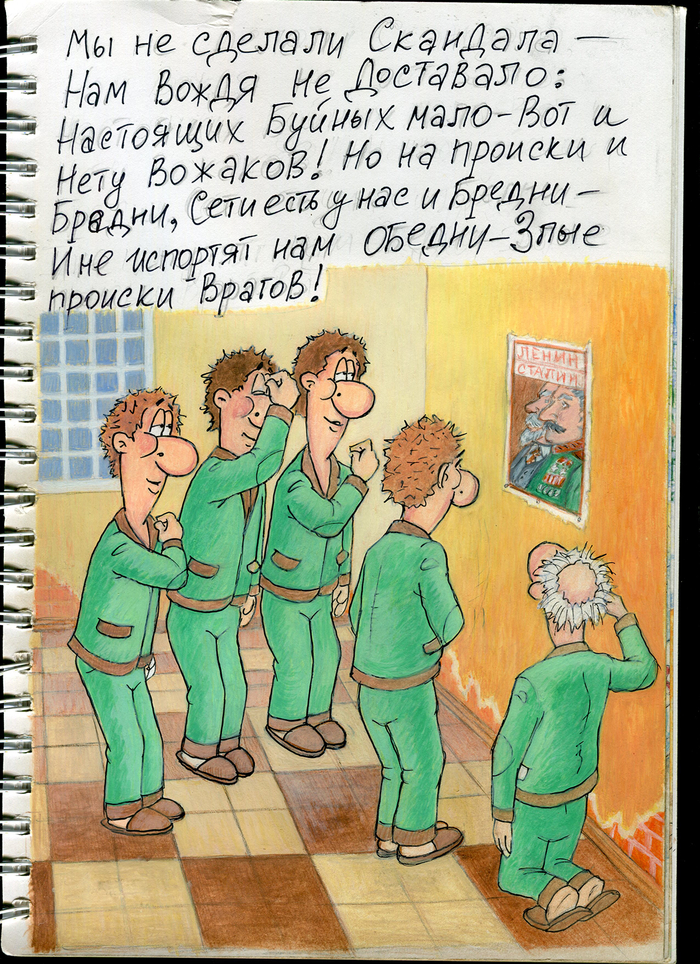 Мы не сделали Скандала –
Нам Вождя не Доставало:
Настоящих Буйных мало-Вот и
Нету Вожаков! Но на происки и
Брадни, Сети есть у нас и Бредни –
И не испортят нам Обедни-Злые
происки Врагов!
ЛЕНИН
СТАЛИН